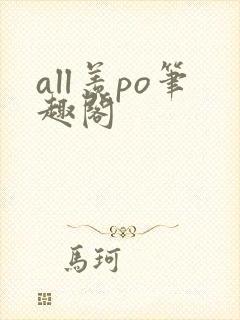 all羞po筆
趣閣
馬珂